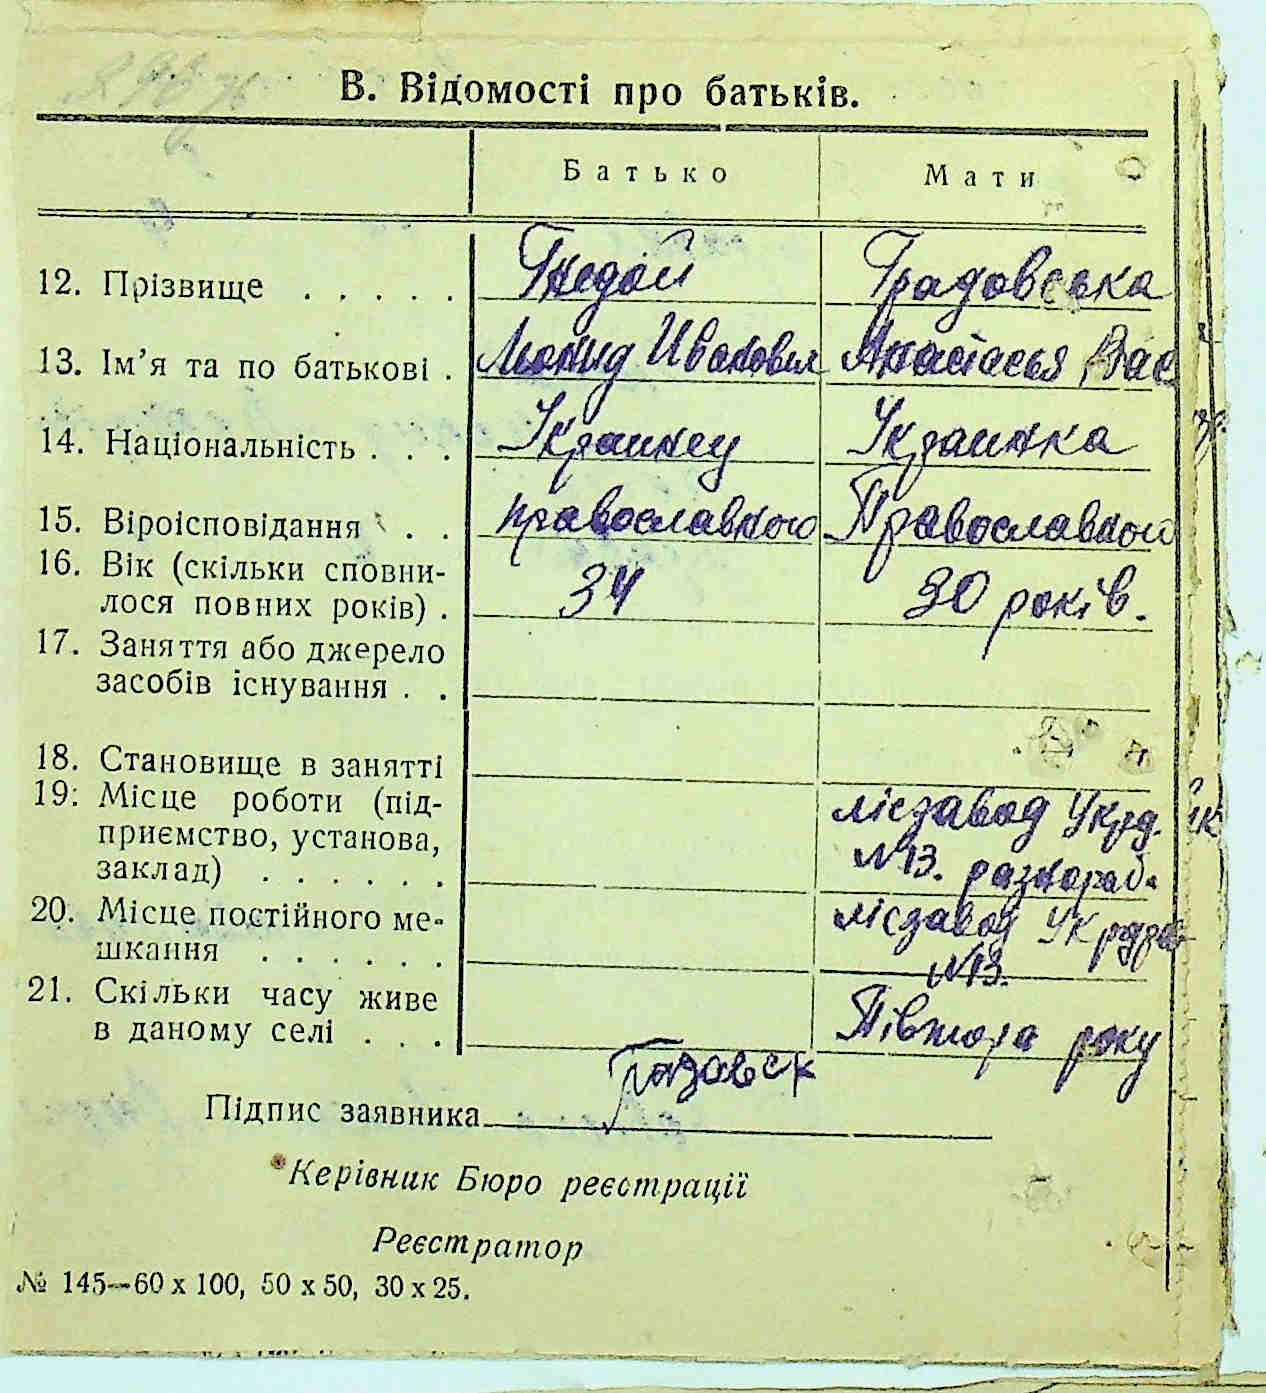 В. Відомості про батьків.
Батько Мати
12. Прізвище . . . . . Гнедой Градовська
13. Ім’я та по батькові . Леонид Иванович Анастасья Вас
14. Національність . . . Украинец Украинка
15. Віроісповідання . . православного Православного
16. Вік (скільки сповни-
лося повних років) . 34 30 років.
17. Заняття або джерело
засобів існування . .
18. Становище в занятті
19. Місце роботи (під- лісзавод Укрд.
приємство, установа, №13. разнораб.
заклад) . . . . . .
20. Місце постійного ме- лісзавод
шкання . . . . . . №13.
21. Скільки часу живе
в даному селі . . . Півтора року
Підпис заявника
Керівник Бюро реєстрації
Реєстратор
№ 145—60 x 100, 50 x 50, 30 x 25.